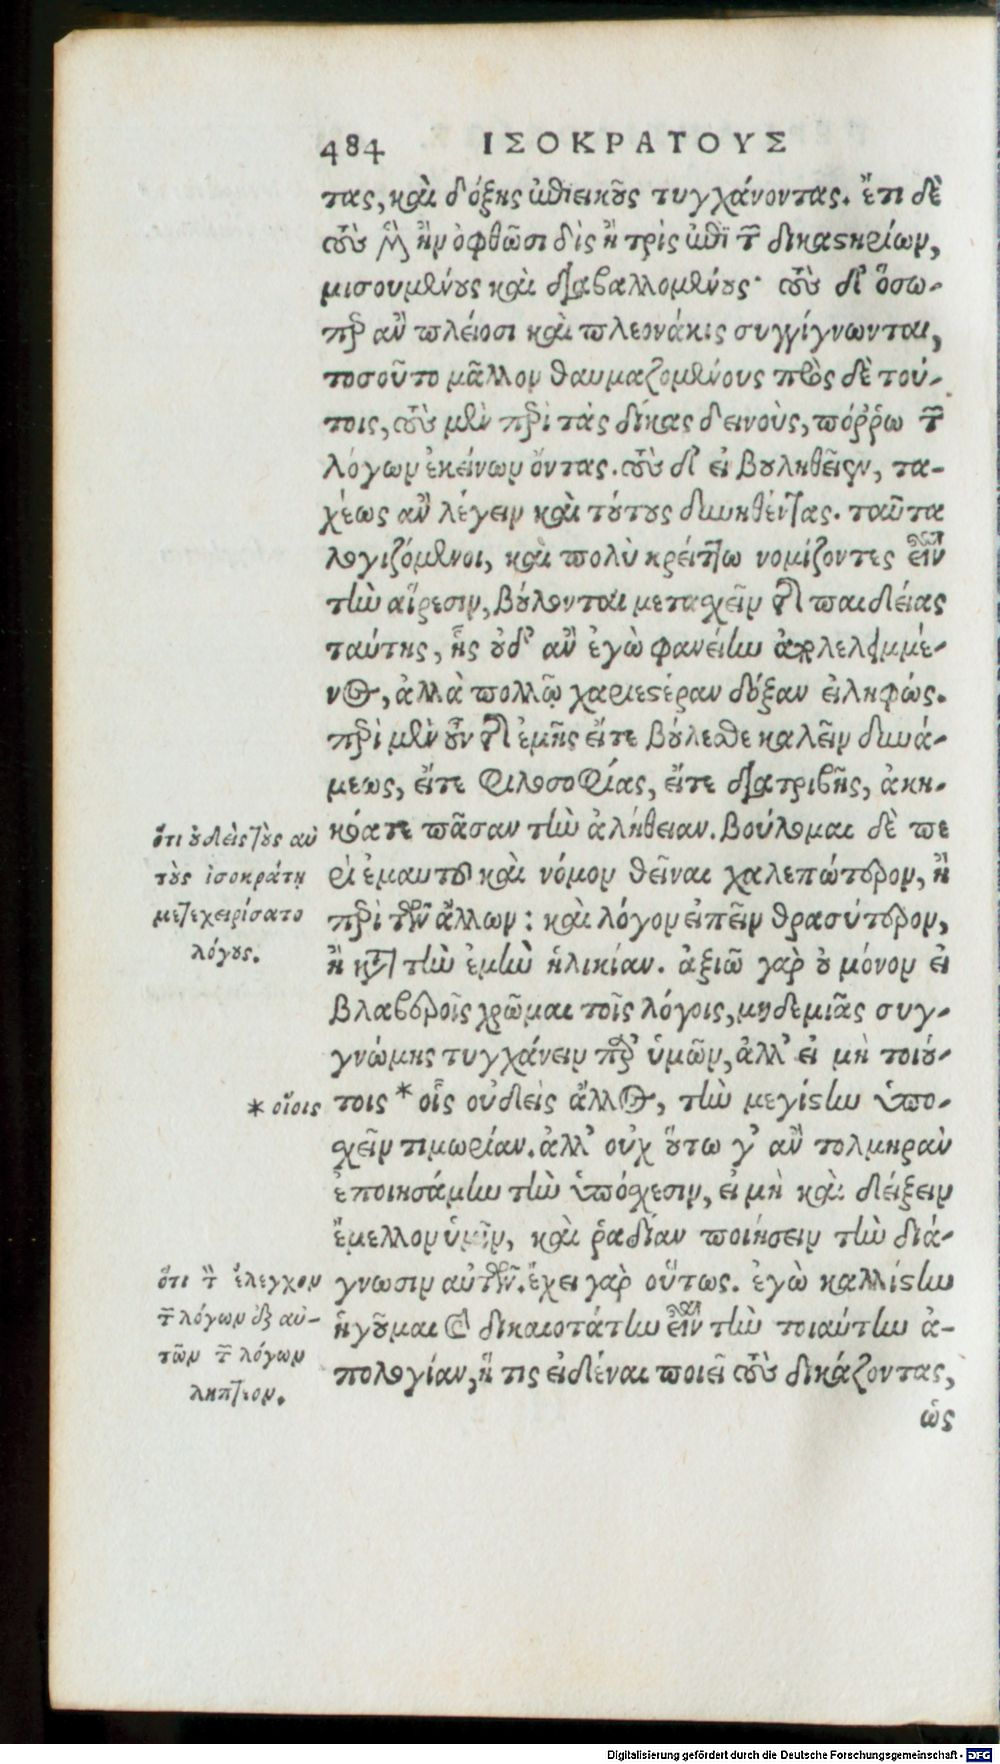 484 ΙΣΟΚΡΑΤΟΥΣ
τας, καὶ δόξης ἐπιεικοῦς τυγχάνοντας. ἔτι δὲ
τοὺς μὲν ἢν ὀφθῶσι δὶς ἢ τρὶς ἐπὶ τῶν δικαστηρίων,
μισουμένους καὶ διαβαλλομένους· τοὺς δ' ὅσω-
περ ἂν πλείοσι καὶ πλεονάκις συγγίγνωνται,
τοσοῦτο μᾶλλον θαυμαζομένους πρὸς δὲ τού-
τοις, τοὺς μὲν περὶ τὰς δίκας δεινοὺς, πόῤῥω τῶν
λόγων ἐκείνων ὄντας. τοὺς δ' εἰ βουληθεῖεν, τα-
χέως ἂν λέγειν καὶ τούτους δυνηθέντας. ταῦτα
λογιζόμενοι, καὶ πολὺ κρείττω νομίζοντες εἶναι
τὴν αἵρεσιν, βούλονται μετασχεῖν τῆς παιδείας
ταύτης, ἧς οὐδ' ἂν ἐγὼ φανείην ἀπολελειμμέ-
νος, ἀλλὰ πολλῷ χαριεστέραν δόξαν εἰληφώς.
περὶ μὲν οὖν τῆς ἐμῆς εἴτε βούλεσθε καλεῖν δυνά-
μεως, εἴτε φιλοσοφίας, εἴτε διατριβῆς, ἀκη-
κόατε πᾶσαν τὴν ἀλήθειαν. βούλομαι δὲ πε
ρὶ ἐμαυτοῦ καὶ νόμον θεῖναι χαλεπώτερον, ἢ
περὶ τῶν ἄλλων: καὶ λόγον εἰπεῖν θρασύτερον,
ἢ κατὰ τὴν ἐμὴν ἡλικίαν. ἀξιῶ γὰρ οὐ μόνον εἰ
βλαβεροῖς χρῶμαι τοῖς λόγοις, μηδεμιᾶς συγ-
γνώμης τυγχάνειν παρ' ὑμῶν, ἀλλ' εἰ μὴ τοιού-
τοις * οἷς οὐδεὶς ἄλλος, τὴν μεγίστην ὑπο-
σχεῖν τιμωρίαν. ἀλλ' οὐχ οὕτω γ' ἂν τολμηρὰν
ἐποιησάμην τὴν ὑπόσχεσιν, εἰ μὴ καὶ δείξειν
ἔμελλον ὑμῖν, καὶ ῥαδίαν ποιήσειν τὴν διά-
γνωσιν αὐτῶν. ἔχει γὰρ οὕτως. ἐγὼ καλλίστην
ἡγοῦμαι καὶ δικαιοτάτην εἶναι τὴν τοιαύτην ἀ-
πολογίαν, ἥ τις εἰδέναι ποιεῖ τοὺς δικάζοντας,
ὡς
ὅτι οὐδεὶς τοὺς αὐ
τοὺς ἰσοκράτη
μετεχειρίσατο
λόγους.
* οἵοις
ὅτι τὸν ἔλεγχον
τῶν λόγων ἐξ αὐ-
τῶν τῶν λόγων
ληπτέον.
Digitalisierung gefördert durch die Deutsche Forschungsgemeinschaft - DFG